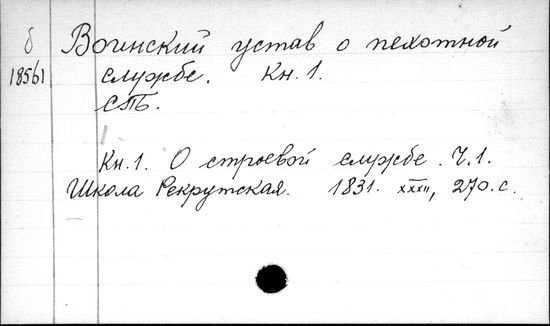 б
18561
Воинский устав о пехотной
службе. Кн. 1.
СПБ.
Кн. 1. О строевой службе. Ч. 1.
Школа Рекрутская. 1831. XXXII, 270. с.